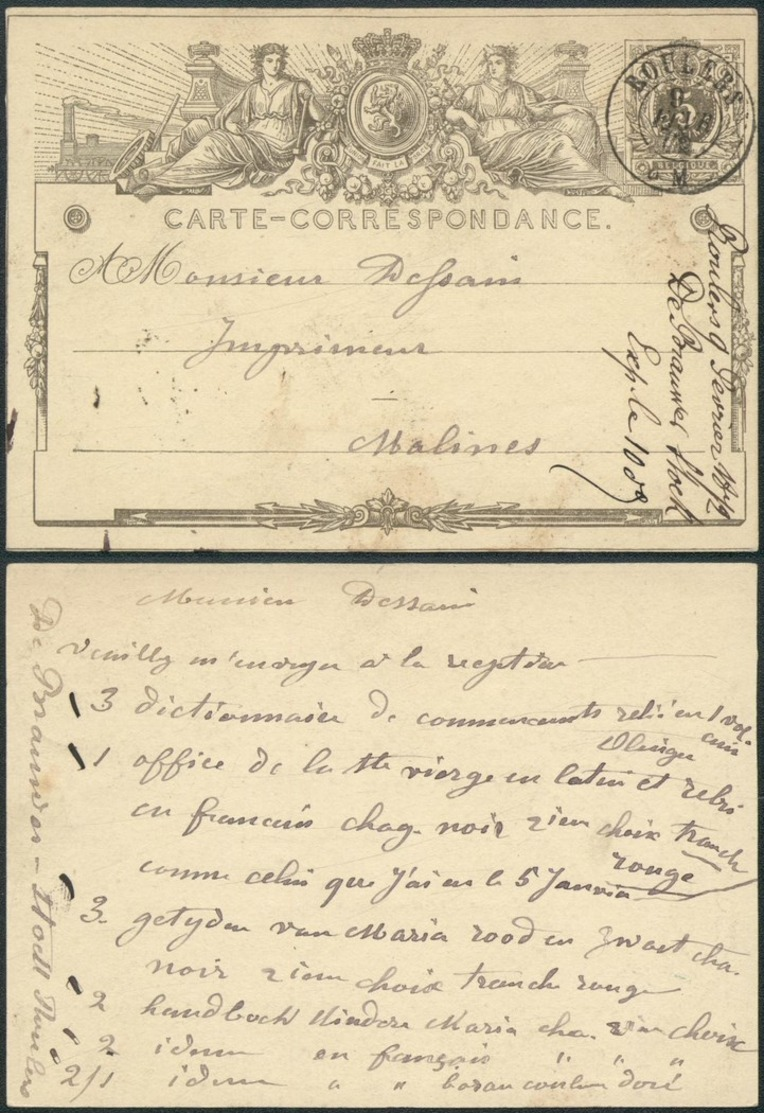 FAIT LA
ROULERS
9
5
BELGIQUE
M
CARTE-CORRESPONDANCE.
A Monsieur Dessain
Imprimeur
Malines
Roulers 9 Fevrier 1872
De Brauwer Stock
Exp le 10 do
Monsieur Dessain
Veuillez m'envoyer à la reception
3 dictionnaire de commercants relié en 1 vol.
Olinger
1 office de la Ste vierge en latin et
en francais chag. noir 2ieme choix tranche
rouge
comme celui que j'ai eu le 5 Janvier
3. getyden van Maria rood en zwart cha.
noir 2iem choix tranche rouge
2 handboek Kinderen Maria cha. 2ieme choix
2 idem en français " " "
2/1 idem " " doré
De Brauwer - Stock Roulers